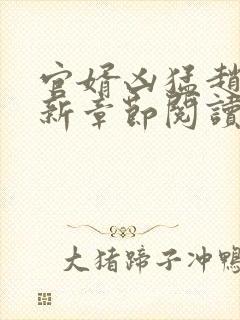 官婿凶猛趙
新章節閱讀
大猪蹄子冲鴨